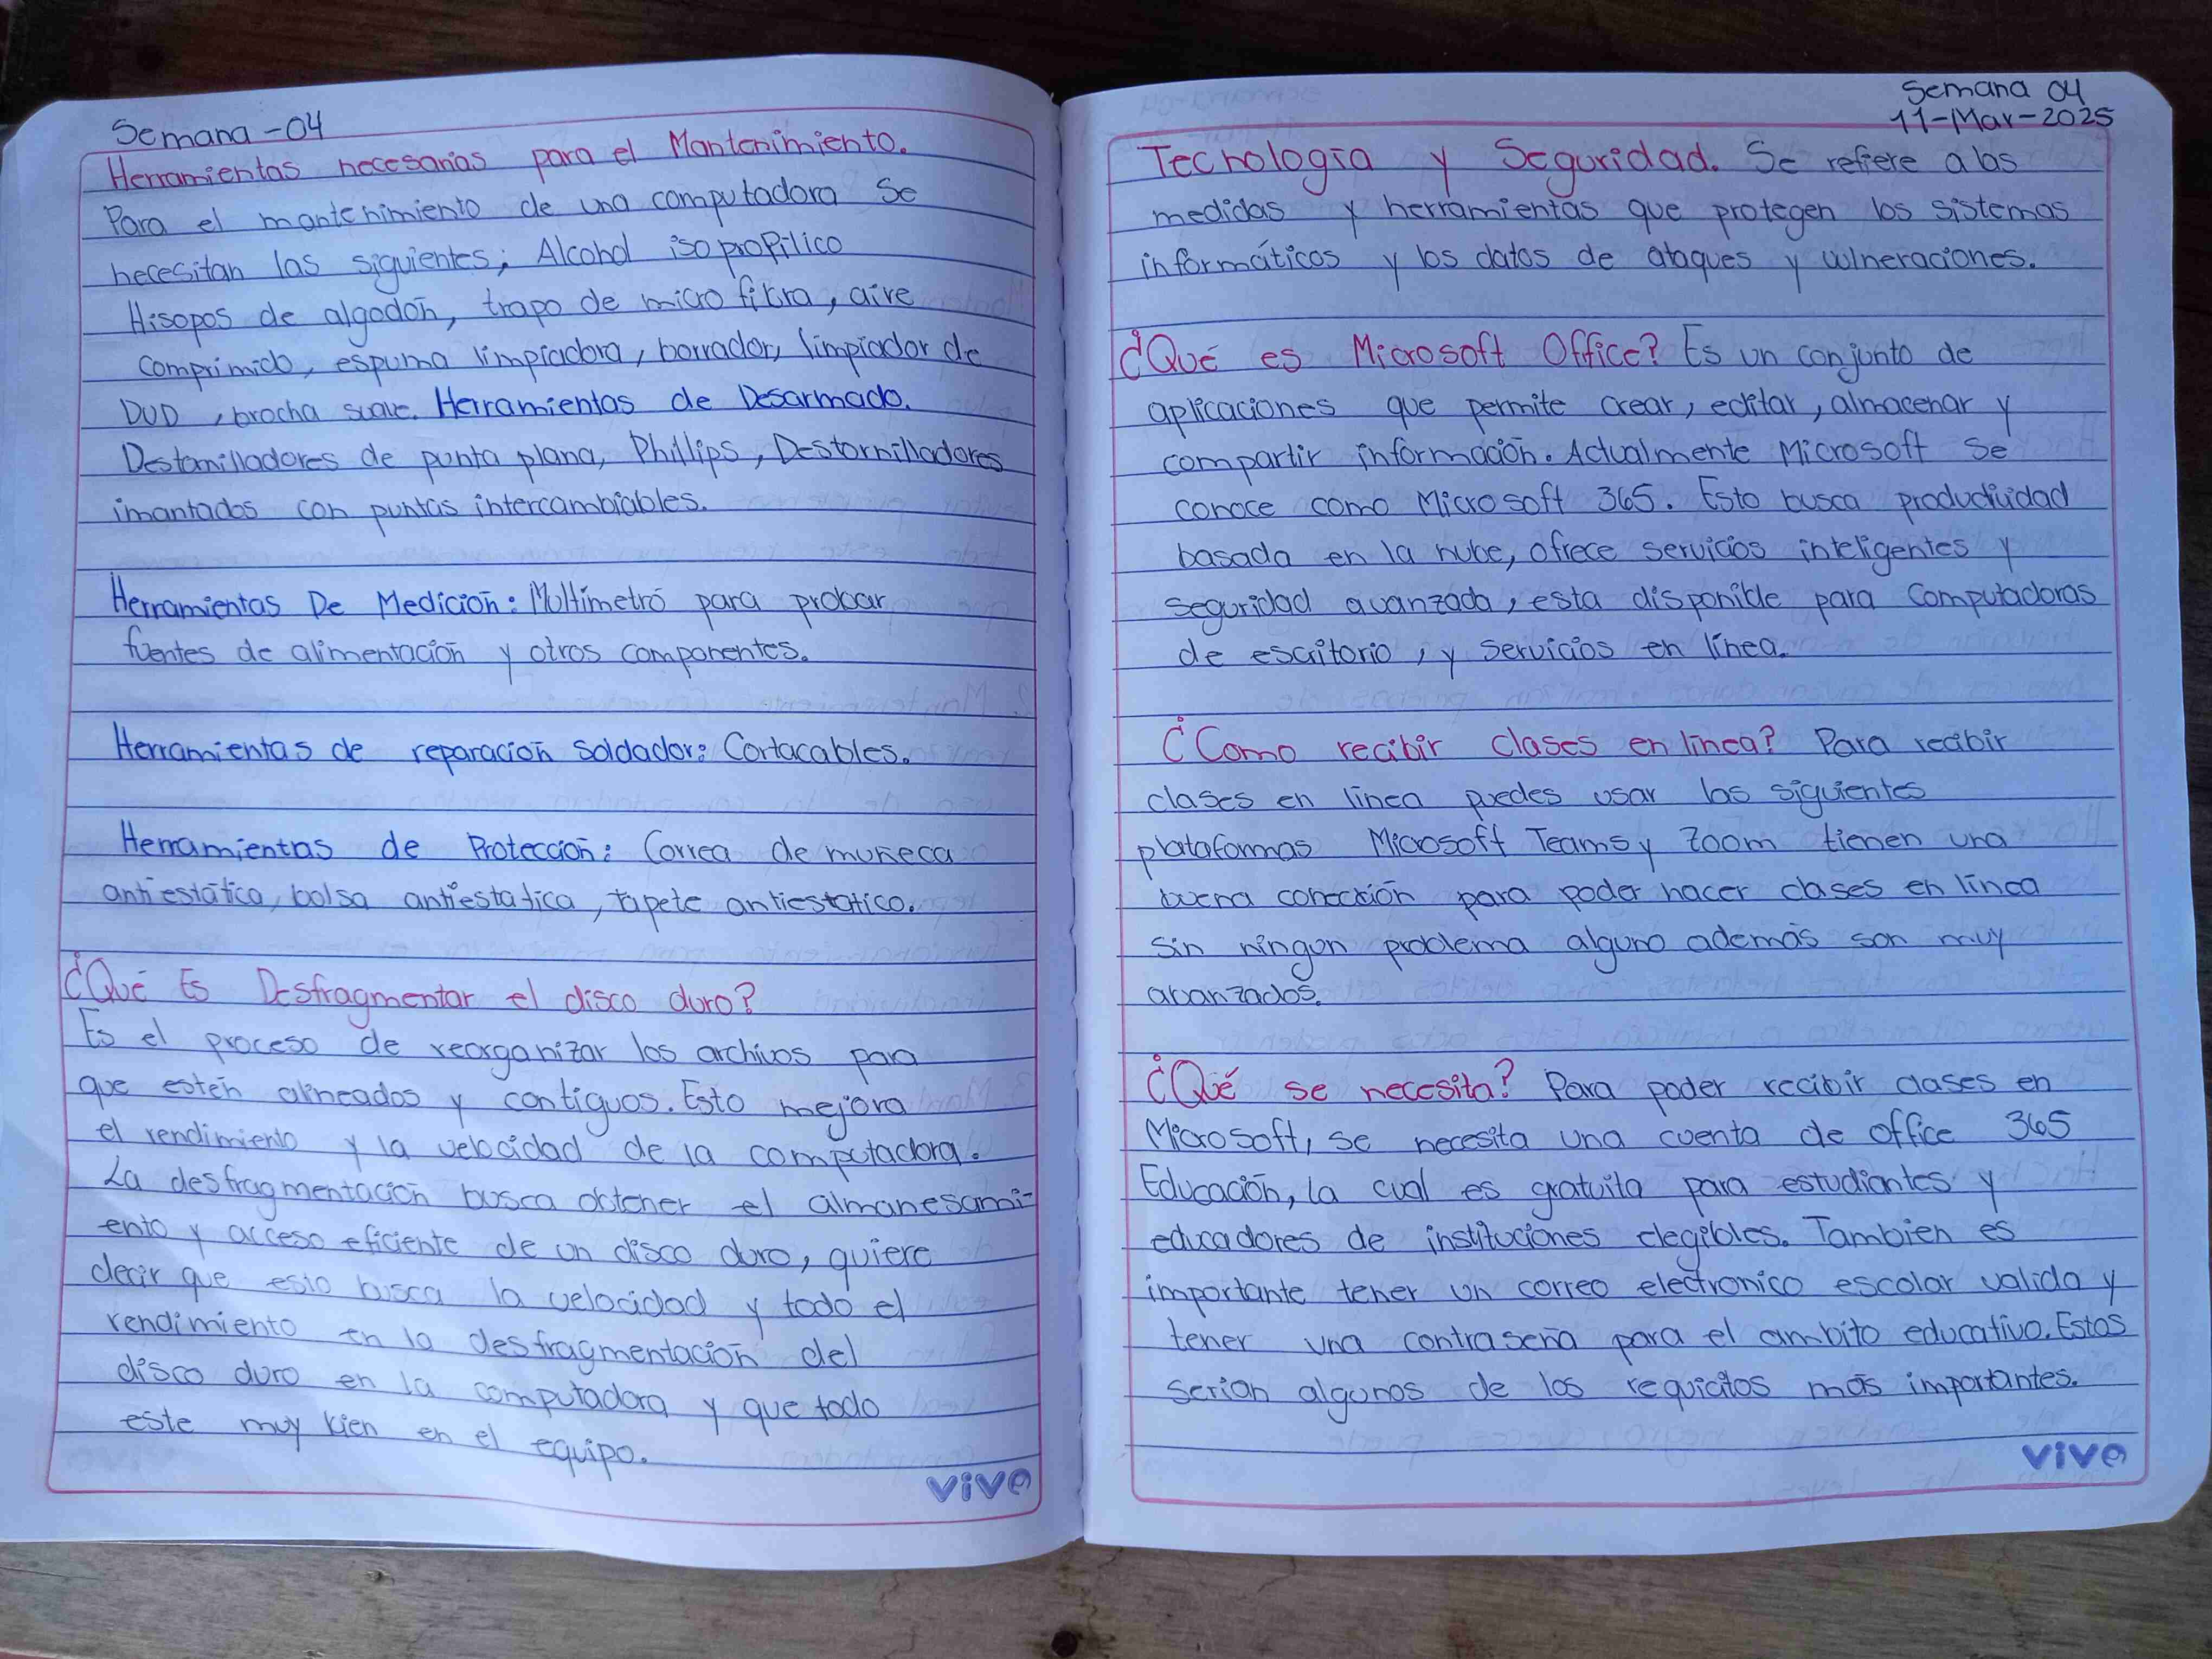 Semana -04
Herramientas necesarias para el Mantenimiento.
Para el mantenimiento de una computadora se
necesitan las siguientes; Alcohol isopropilico
Hisopos de algodón, trapo de micro fibra, aire
comprimido, espuma limpiadora, borrador, limpiador de
DVD, brocha suave. Herramientas de Desarmado.
Destornilladores de punta plana, Phillips, Destornilladores
imantados con puntas intercambiables.
Herramientas De Medición: Multímetro para probar
fuentes de alimentación y otros componentes.
Herramientas de reparación Soldador: Cortacables.
Herramientas de Protección: Correa de muñeca
antiestática, bolsa antiestatica, tapete antiestatico.
¿Qué Es Desfragmentar el disco duro?
Es el proceso de reorganizar los archivos para
que estén alineados y contiguos. Esto mejora
el rendimiento y la velocidad de la computadora.
La desfragmentación busca obtener el almanesami-
ento y acceso eficiente de un disco duro, quiere
decir que esto busca la velocidad y todo el
rendimiento en la desfragmentación del
disco duro en la computadora y que todo
este muy bien en el equipo.
vive
Semana 04
11-Mar-2025
Tecnología y Seguridad. Se refiere a las
medidas y herramientas que protegen los sistemas
informáticos y los datos de ataques y vulneraciones.
¿Qué es Microsoft Office? Es un conjunto de
aplicaciones que permite crear, editar, almacenar y
compartir información. Actualmente Microsoft se
conoce como Microsoft 365. Esto busca productividad
basada en la nube, ofrece servicios inteligentes y
seguridad avanzada, esta disponible para computadoras
de escritorio, y servicios en línea.
¿Como recibir clases en línea? Para recibir
clases en línea puedes usar las siguientes
plataformas Microsoft Teams y Zoom tienen una
buena conección para poder hacer clases en línea
sin ningun problema alguno además son muy
avanzados.
¿Qué se necesita? Para poder recibir clases en
Microsoft, se necesita una cuenta de office 365
Educación, la cual es gratuita para estudiantes y
educadores de instituciones elegibles. Tambien es
importante tener un correo electronico escolar valida y
tener una contraseña para el ambito educativo. Estos
serian algunos de los requicitos más importantes.
vive